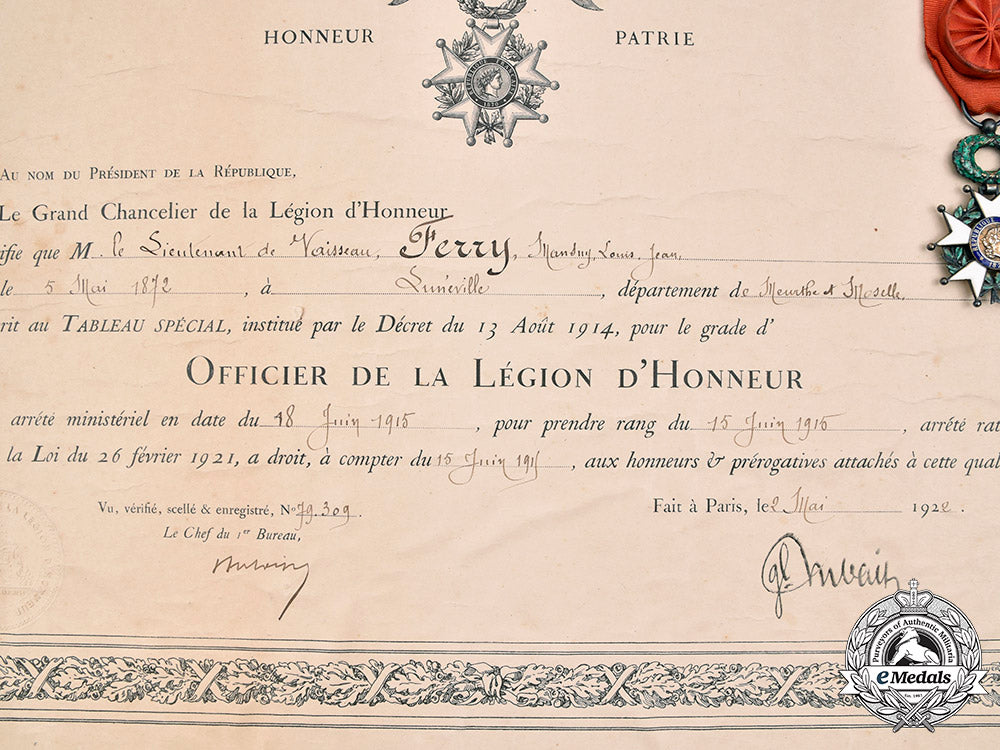 HONNEUR PATRIE
RÉPUBLIQUE FRANÇAISE
1870
AU NOM DU PRÉSIDENT DE LA RÉPUBLIQUE,
Le Grand Chancelier de la Légion d'Honneur
ifie que M. le Lieutenant de Vaisseau, Ferry, Louis, Jean,
le 5 Mai 1872, à Lunéville, département de Meurthe et Moselle,
rit au TABLEAU SPÉCIAL, institué par le Décret du 13 Août 1914, pour le grade d'
OFFICIER DE LA LÉGION D'HONNEUR
arrêté ministériel en date du 18 Juin 1915, pour prendre rang du 15 Juin 1915, arrêté rat
la Loi du 26 février 1921, a droit, à compter du 15 Juin 1915, aux honneurs & prérogatives attachés à cette qual
Vu, vérifié, scellé & enregistré, N° 79.309.
Fait à Paris, le 2 Mai 1922.
Le Chef du 1er Bureau,
Purveyors of Authentic Militaria
eMedals